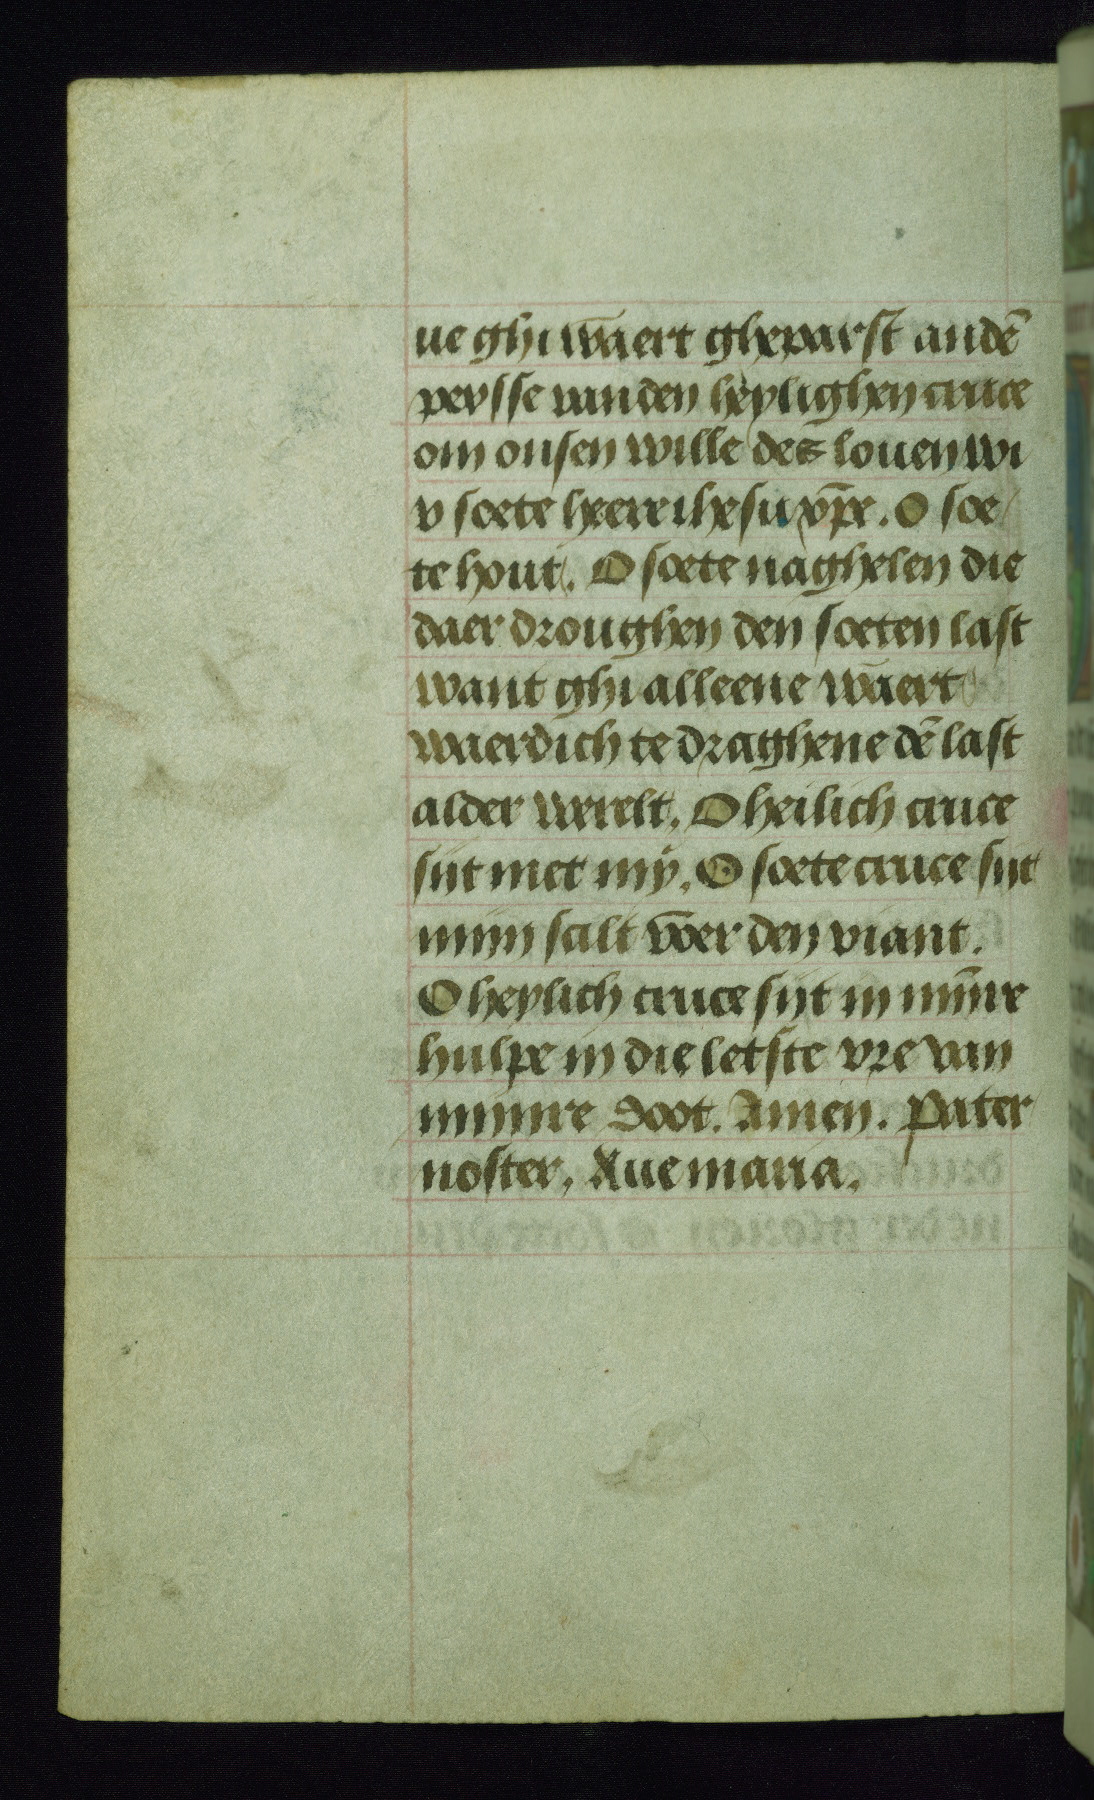 ue ghi waert gheparst andē
persse vanden heylighen cruce
om onsen wille des louen wi
v soete heere ihesu xp̄e. O soe
te hout. O soete naghelen die
daer droughen den soeten last
want ghi alleene waert
waerdich te draghene dē last
alder werelt. O heilich cruce
sijt met mÿ. O soete cruce sijt
mijn scilt voer den viant.
O heylich cruce sijt in mijnre
hulpe in die letste vre van
mijnre doot. Amen. Pater
noster. Aue maria.